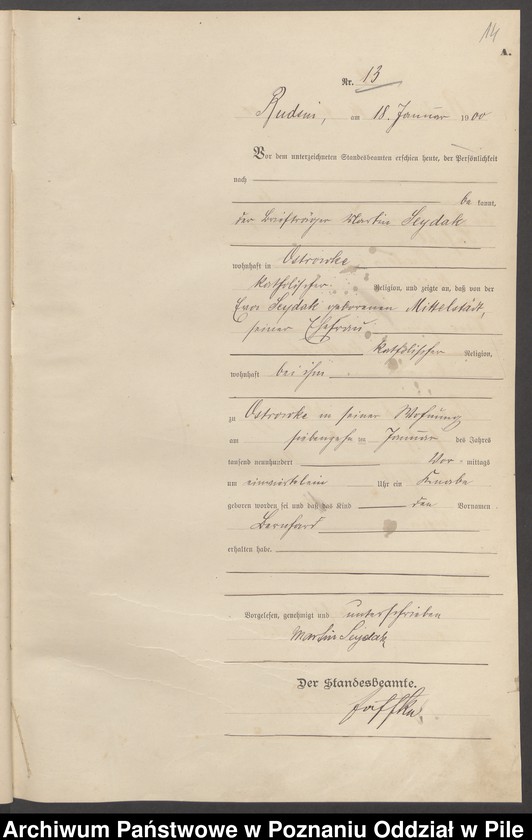 14
A.
Nr. 13
am 18. Januar 1900
Vor dem unterzeichneten Standesbeamten erschien heute, der Persönlichkeit
nach
be kannt,
der Briefträger Martin Seydak
wohnhaft in Ostrowke
katholischer Religion, und zeigte an, daß von der
Seydak geborenen Mittelstädt,
seiner Ehefrau
katholischer Religion,
wohnhaft bei ihm
zu Ostrowke in seiner Wohnung
am siebengehn ten Januar des Jahres
tausend neunhundert Vor mittags
um Uhr ein Knabe
geboren worden sei und daß das Kind den Vornamen
Bernhard
erhalten habe.
Vorgelesen, genehmigt und unterschrieben
Martin Seydak
Der Standesbeamte.
Archiwum Państwowe w Poznaniu Oddział w Pile